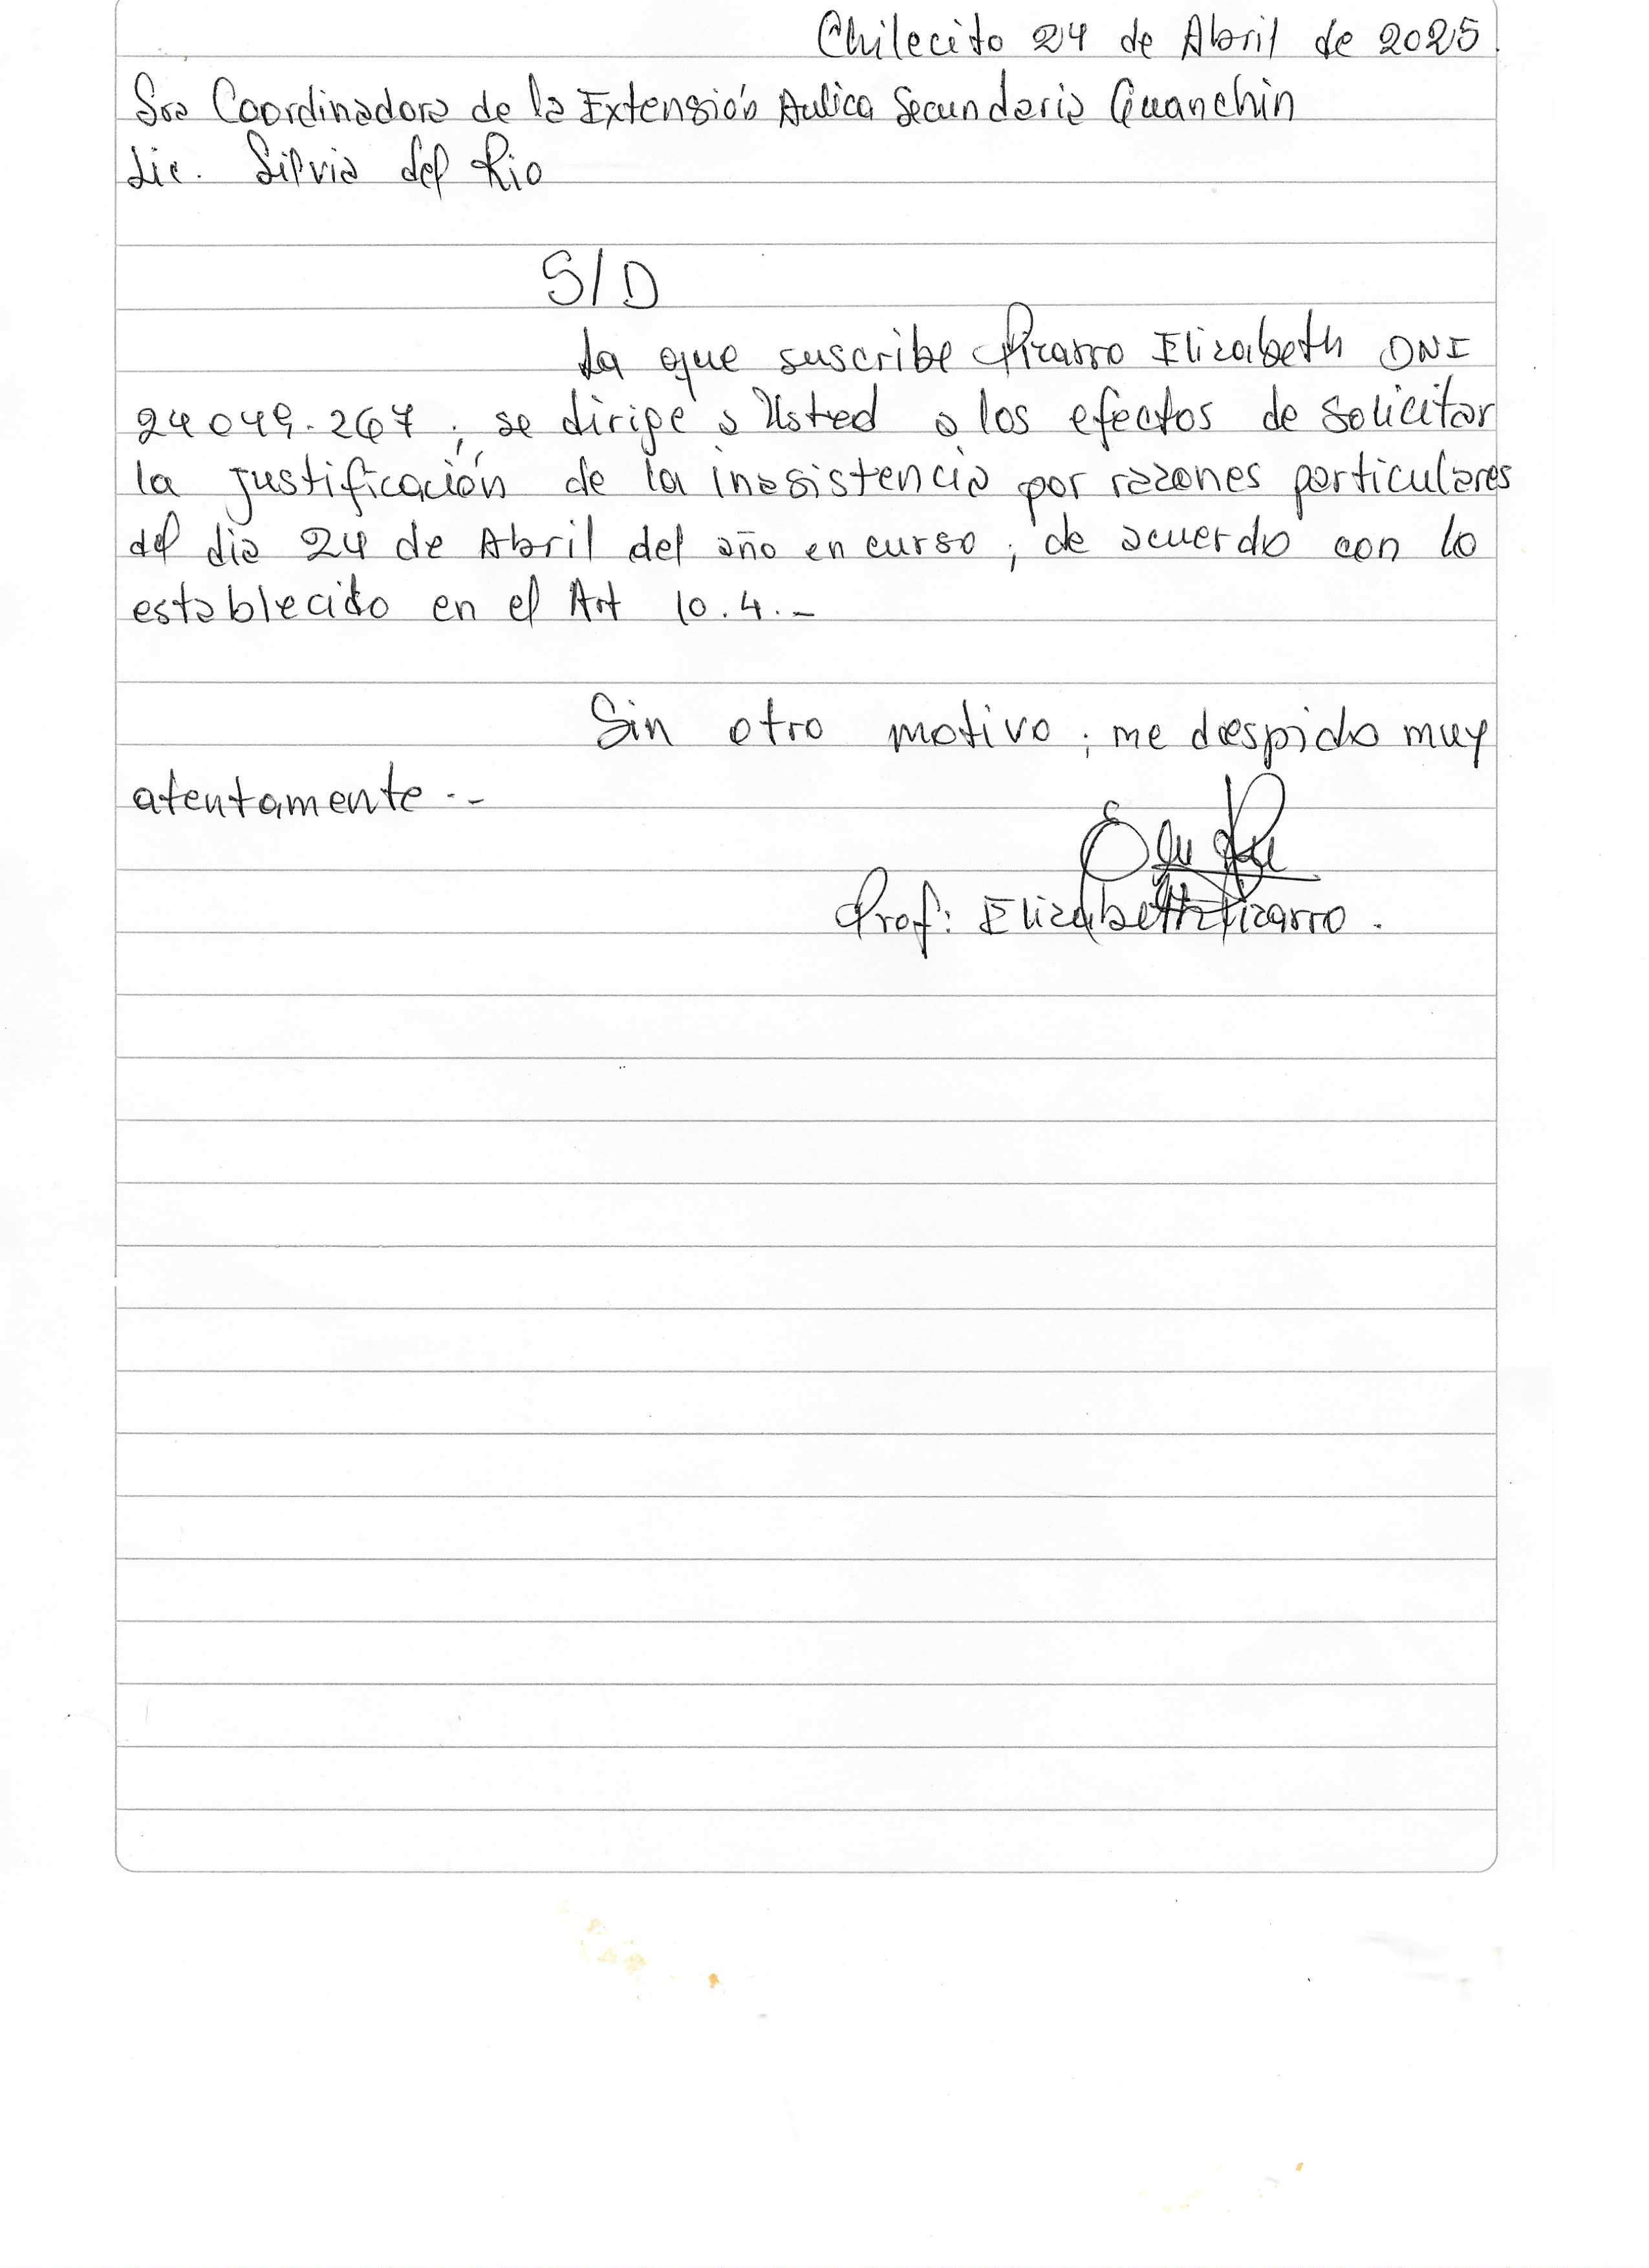 Chilecito 24 de Abril de 2025.
Sra Coordinadora de la Extensión Aulica Secundaria Guanchin
Lic. Silvia del Rio
S/D
La que suscribe Pizarro Elizabeth DNI
24049.267, se dirige a Usted a los efectos de solicitar
la justificación de la inasistencia por razones particulares
del dia 24 de Abril del año en curso, de acuerdo con lo
establecido en el Art 10.4.-
Sin otro motivo, me despido muy
atentamente.-
Prof: Elizabeth Pizarro.